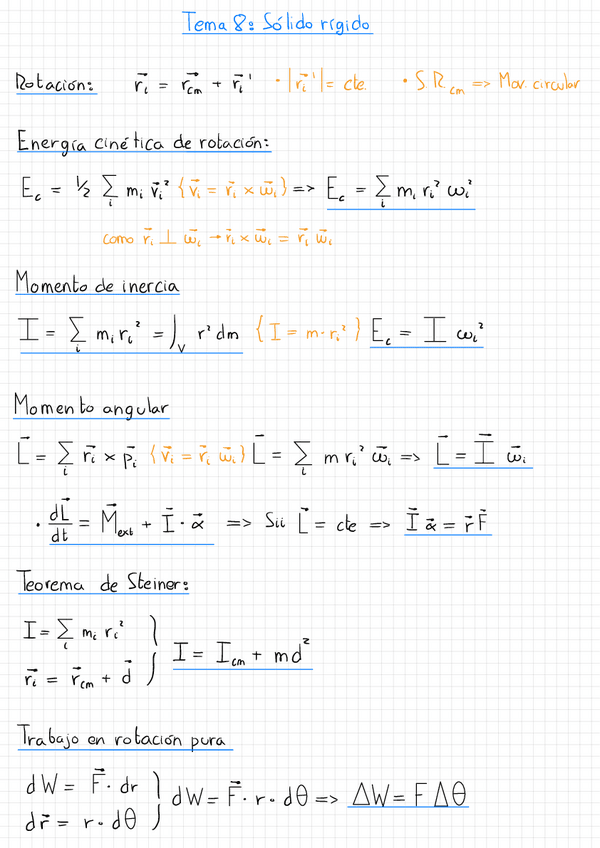 Tema 8: Sólido rígido
Rotación: r⃗ᵢ = r⃗cm + r⃗ᵢ' · |r⃗ᵢ'| = cte. · S.R.cm => Mov. circular
Energía cinética de rotación:
Ec = 1/2 Σᵢ mᵢ v⃗ᵢ² {v⃗ᵢ = r⃗ᵢ × ω⃗ᵢ} => Ec = Σᵢ mᵢ rᵢ² ωᵢ²
como r⃗ᵢ ⊥ ω⃗ᵢ → r⃗ᵢ × ω⃗ᵢ = r⃗ᵢ ω⃗ᵢ
Momento de inercia
I = Σᵢ mᵢ rᵢ² = ∫ᵥ r² dm {I = m · rᵢ²} Ec = I ωᵢ²
Momento angular
L⃗ = Σᵢ r⃗ᵢ × p⃗ᵢ {v⃗ᵢ = r⃗ᵢ ω⃗ᵢ} L⃗ = Σᵢ m rᵢ² ω⃗ᵢ => L⃗ = I⃗ ω⃗ᵢ
· dL⃗/dt = M⃗ext + I⃗ · α⃗ => Sii L⃗ = cte => I⃗ α⃗ = r⃗ F⃗
Teorema de Steiner:
I = Σᵢ mᵢ rᵢ²
r⃗ᵢ = r⃗cm + d⃗ } I = Icm + md²
Trabajo en rotación pura
dW = F⃗ · dr
dr⃗ = r · dθ } dW = F⃗ · r · dθ => ΔW = F Δθ